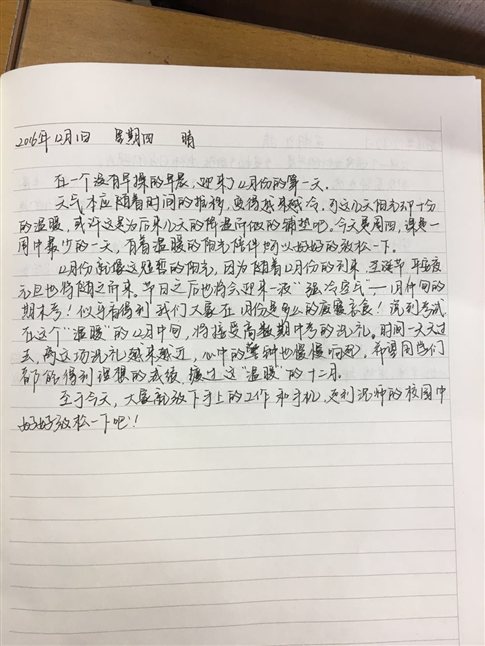 2016年12月1日 星期四 晴
在一个没有早操的早晨,迎来了12月份的第一天.
天气本应随着时间的推移,变得越来越冷,可这几天阳光却十分
的温暖,或许这是为后来几天的降温所做的铺垫吧。今天是周四,课是一
周中最少的一天,有着温暖的阳光陪伴可以好好的放松一下。
12月份就像这短暂的阳光,因为随着12月份的到来,圣诞节平安夜
元旦也将随之而来。节日之后也将会迎来一波“强冷空气”——月仲旬的
期末考!似乎看得到我们大家在1月份是多么的废寝忘食!说到考试
在这个“温暖”的12月中旬,将接受高数期中考的洗礼。时间一天天过
去,离这场洗礼越来越近,心中的警钟也慢慢响起,希望同学们
都能得到理想的成绩,度过这“温暖”的十二月。
至于今天,大家就放下手上的工作和手机,到泥师的校园中
好好放松一下吧!